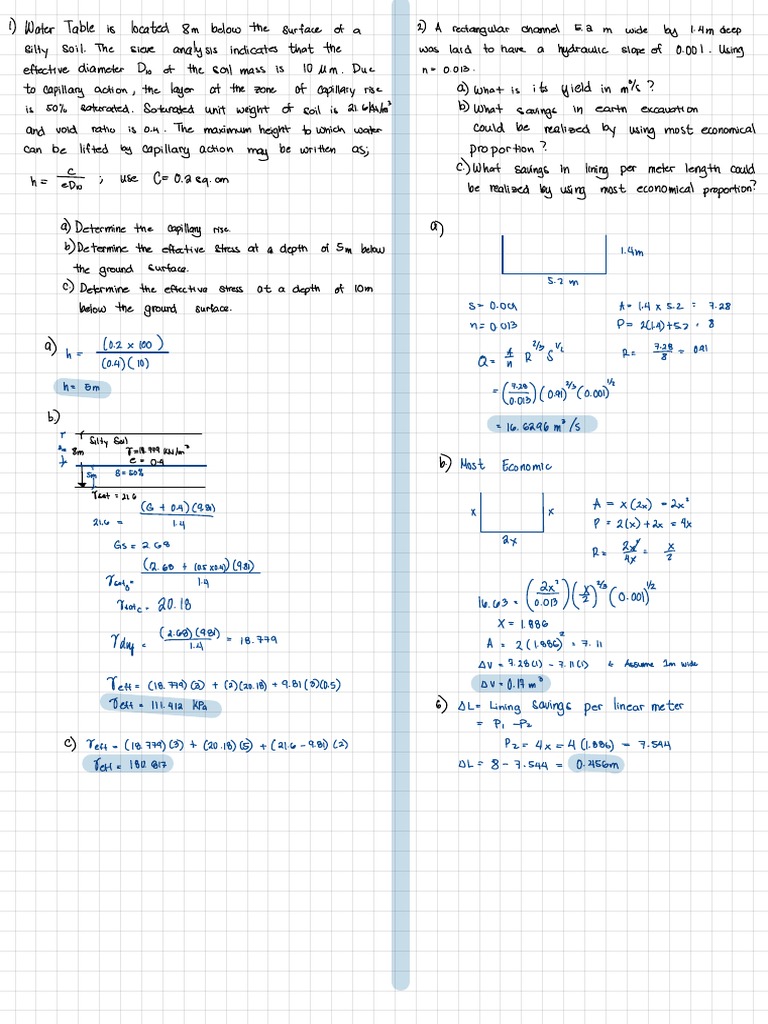 1) Water Table is located 8m below the surface of a
silty soil. The sieve analysis indicates that the
effective diameter D10 of the soil mass is 10 μm. Due
to capillary action, the layer at the zone of capillary rise
is 50% saturated. Saturated unit weight of soil is 21.6 kN/m³
and void ratio is 0.4. The maximum height to which water
can be lifted by capillary action may be written as;
h = C / eD10 ; use C= 0.2 sq.cm
a) Determine the capillary rise.
b) Determine the effective stress at a depth of 5m below
the ground surface.
c) Determine the effective stress at a depth of 10m
below the ground surface.
a) h = (0.2 x 100) / (0.4)(10)
h = 5m
b)
Silty Soil
8m
γ=18.779 kN/m³
e = 0.4
5m
S = 50%
γsat = 21.6
21.6 = (G + 0.4)(9.81) / 1.4
Gs = 2.68
(2.68 + (0.5x0.4))(9.81) / 1.4
= 20.18
γdry = (2.68)(9.81) / 1.4 = 18.779
γeff = (18.779)(3) + (2)(20.18) + 9.81(3)(0.5)
γeff = 111.412 kPa
c) γeff = (18.779)(3) + (20.18)(5) + (21.6 - 9.81)(2)
γeff = 180.817
2) A rectangular channel 5.2 m wide by 1.4m deep
was laid to have a hydraulic slope of 0.001. Using
n= 0.013.
a) What is its yield in m³/s ?
b) What savings in earth excavation
could be realized by using most economical
proportion ?
c.) What savings in lining per meter length could
be realized by using most economical proportion?
a)
1.4m
5.2 m
S= 0.001 A= 1.4 x 5.2 = 7.28
n= 0.013 P= 2(1.4)+5.2 = 8
R= 7.28 / 8 = 0.91
Q= A/n R^2/3 S^1/2
= (7.28 / 0.013)(0.91)^2/3 (0.001)^1/2
= 16.6296 m³/s
b.) Most Economic
x x
2x
A = x(2x) = 2x²
P = 2(x) + 2x = 4x
R = 2x² / 4x = x / 2
16.63 = (2x² / 0.013)(x / 2)^2/3 (0.001)^1/2
x = 1.886
A = 2(1.886)² = 7.11
ΔV = 7.28(1) - 7.11(1) * Assume 1m wide
ΔV = 0.17 m³
6) ΔL= Lining Savings per linear meter
= P1 - P2
P2 = 4x = 4(1.886) = 7.544
ΔL = 8 - 7.544 = 0.456m